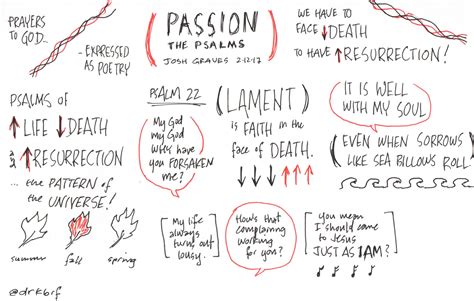 PRAYERS
TO GOD...
- EXPRESSED
AS POETRY
PASSION
THE PSALMS
JOSH GRAVES 2-12-17
WE HAVE TO
FACE ↓DEATH
TO HAVE ↑RESURRECTION!
PSALMS OF
↑LIFE ↓DEATH
↑RESURRECTION
... the PATTERN of
the UNIVERSE!
summer
fall
spring
PSALM 22
My God
my God
why have
you FORSAKEN
me?
LAMENT
is FAITH in the
face of DEATH.
↓↓↓↑↑↑
IT IS WELL
WITH MY SOUL
EVEN WHEN SORROWS
LIKE SEA BILLOWS ROLL
My life
always
turns out
lousy.
How's that
complaining
working
for you?
you mean
I should come
to Jesus
JUST AS I AM?
@drkbrf